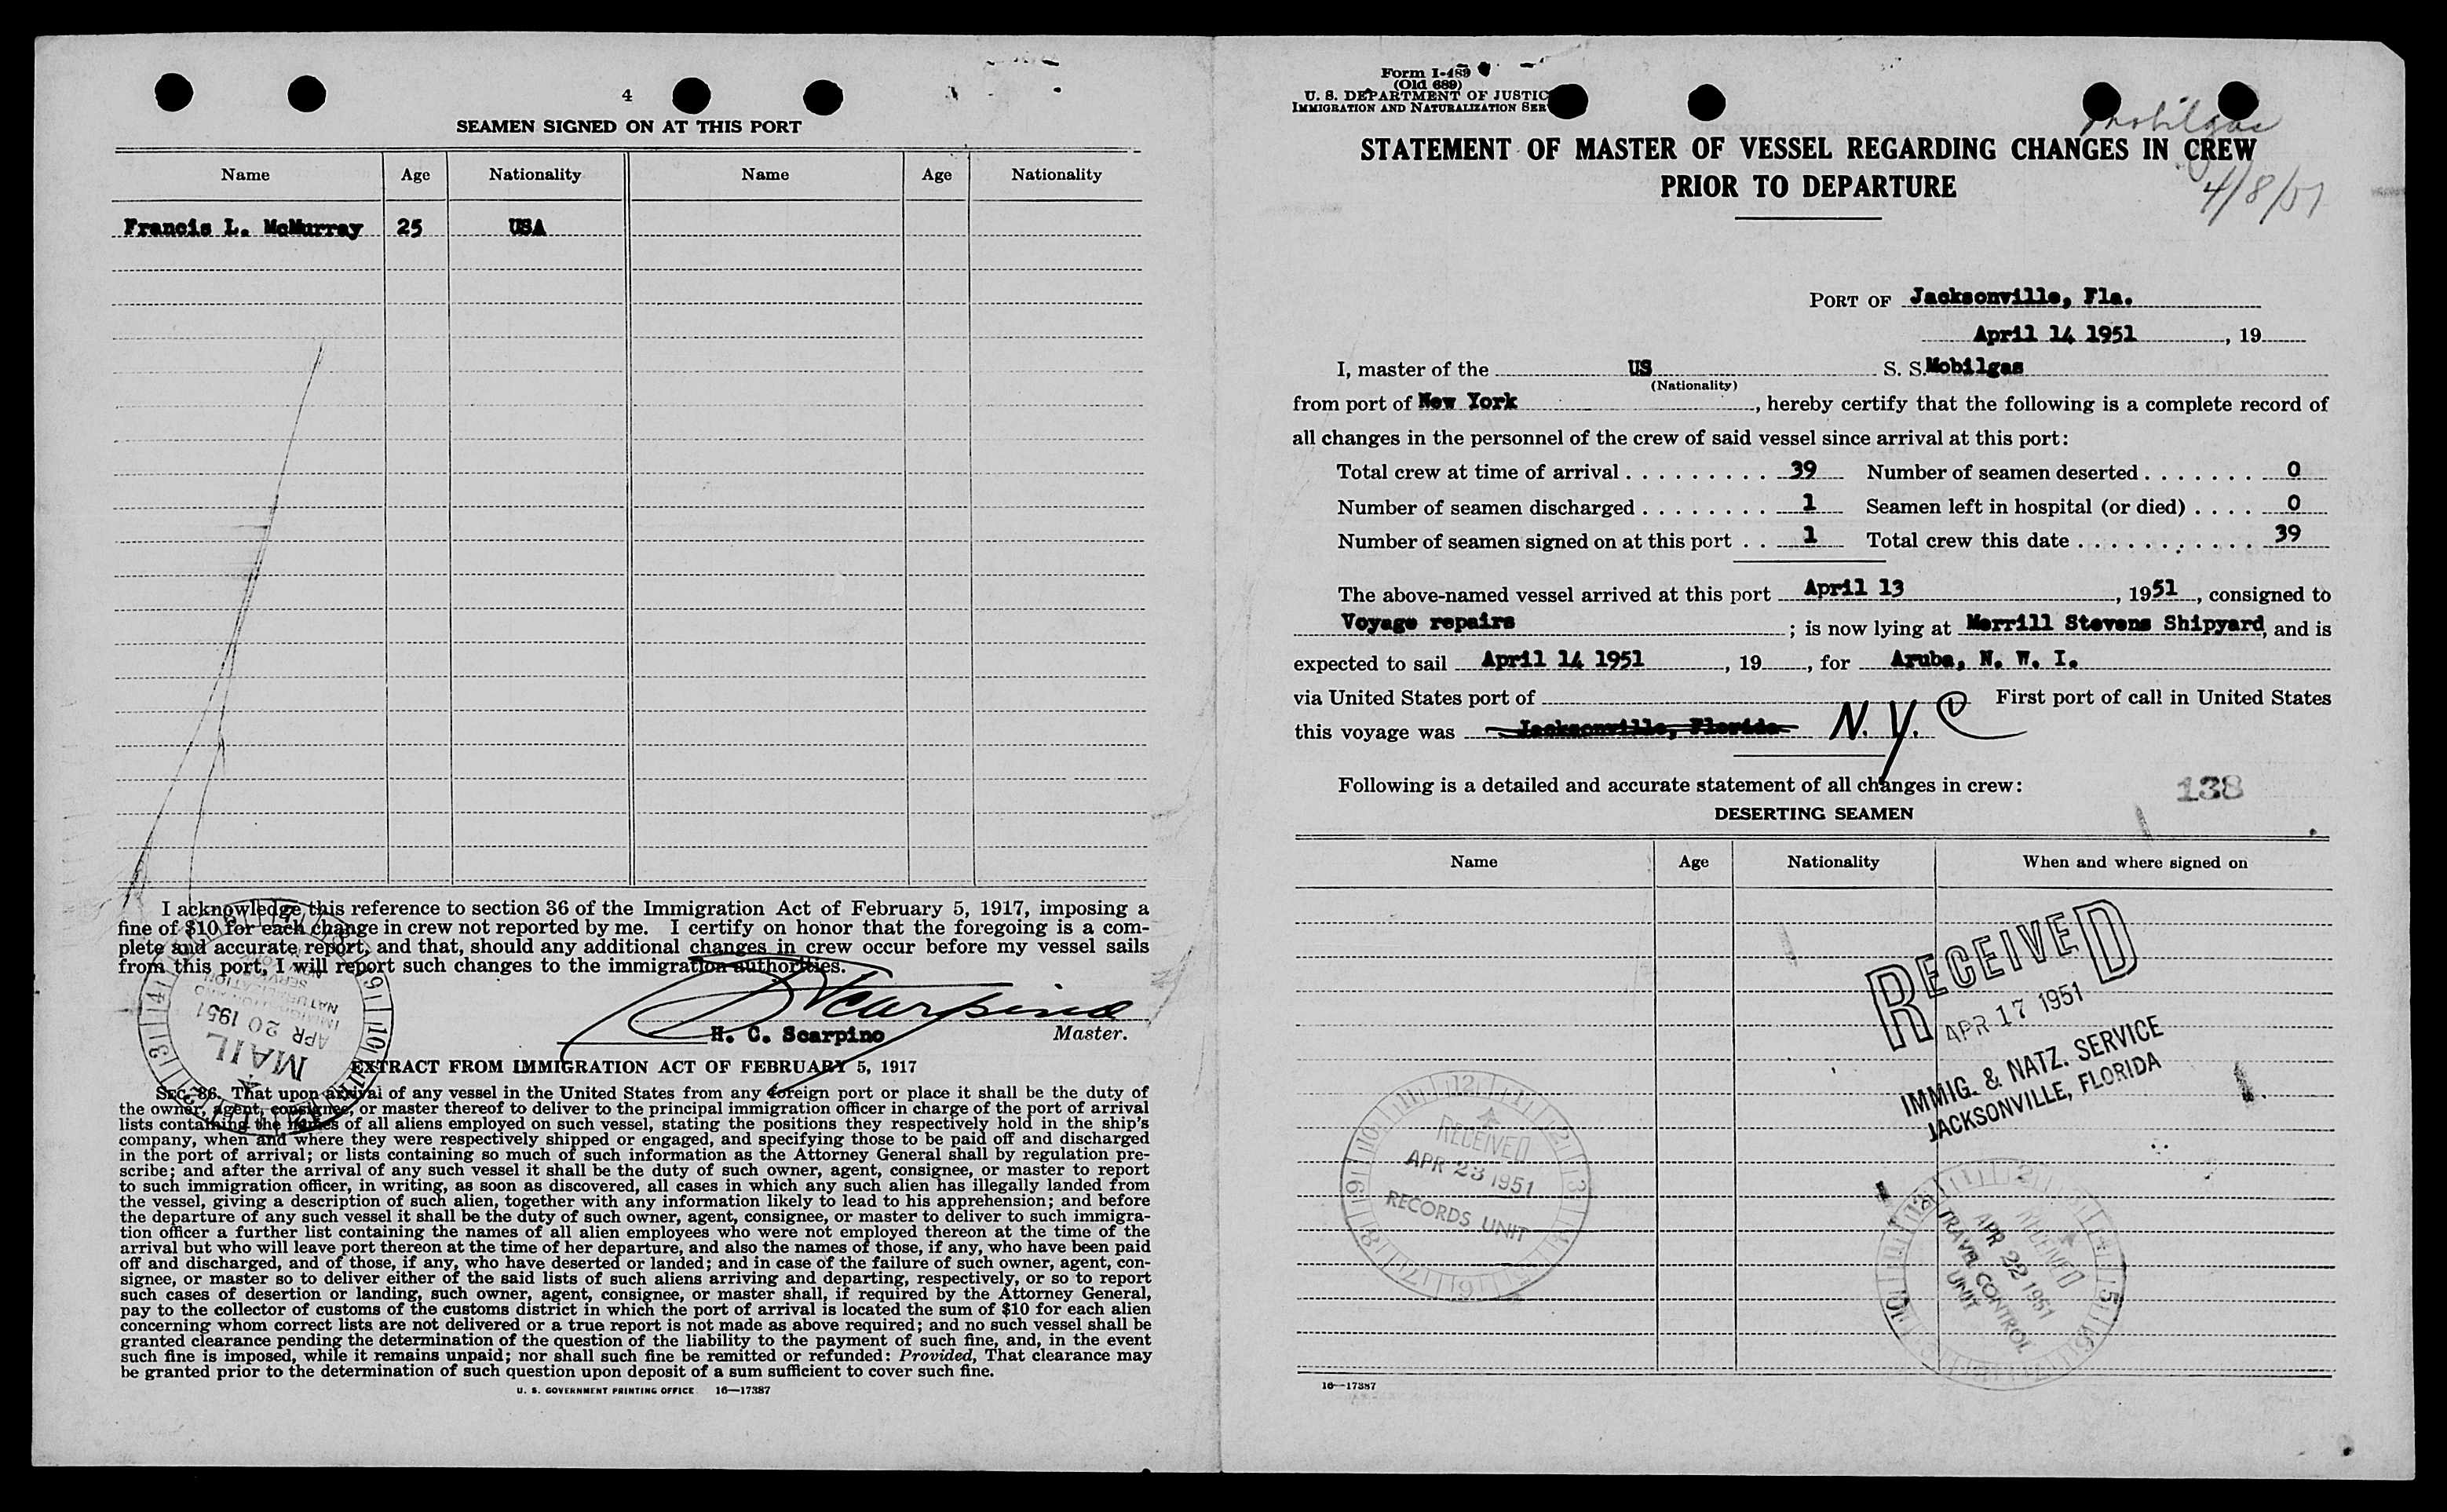 4
SEAMEN SIGNED ON AT THIS PORT
Name Age Nationality Name Age Nationality
Francis L. McMurray 25 USA
I acknowledge this reference to section 36 of the Immigration Act of February 5, 1917, imposing a
fine of $10 for each change in crew not reported by me. I certify on honor that the foregoing is a com-
plete and accurate report, and that, should any additional changes in crew occur before my vessel sails
from this port, I will report such changes to the immigration authorities.
Scarpino
H. C. Scarpino Master.
MAIL
APR 20 1951
IMMIGRATION AND
NATURALIZATION
SERVICE
EXTRACT FROM IMMIGRATION ACT OF FEBRUARY 5, 1917
SEC. 36. That upon arrival of any vessel in the United States from any foreign port or place it shall be the duty of
the owner, agent, consignee, or master thereof to deliver to the principal immigration officer in charge of the port of arrival
lists containing the names of all aliens employed on such vessel, stating the positions they respectively hold in the ship's
company, when and where they were respectively shipped or engaged, and specifying those to be paid off and discharged
in the port of arrival; or lists containing so much of such information as the Attorney General shall by regulation pre-
scribe; and after the arrival of any such vessel it shall be the duty of such owner, agent, consignee, or master to report
to such immigration officer, in writing, as soon as discovered, all cases in which any such alien has illegally landed from
the vessel, giving a description of such alien, together with any information likely to lead to his apprehension; and before
the departure of any such vessel it shall be the duty of such owner, agent, consignee, or master to deliver to such immigra-
tion officer a further list containing the names of all alien employees who were not employed thereon at the time of the
arrival but who will leave port thereon at the time of her departure, and also the names of those, if any, who have been paid
off and discharged, and of those, if any, who have deserted or landed; and in case of the failure of such owner, agent, con-
signee, or master so to deliver either of the said lists of such aliens arriving and departing, respectively, or so to report
such cases of desertion or landing, such owner, agent, consignee, or master shall, if required by the Attorney General,
pay to the collector of customs of the customs district in which the port of arrival is located the sum of $10 for each alien
concerning whom correct lists are not delivered or a true report is not made as above required; and no such vessel shall be
granted clearance pending the determination of the question of the liability to the payment of such fine, and, in the event
such fine is imposed, while it remains unpaid; nor shall such fine be remitted or refunded: Provided, That clearance may
be granted prior to the determination of such question upon deposit of a sum sufficient to cover such fine.
U. S. GOVERNMENT PRINTING OFFICE 16—17387
Form I-489
(Old 689)
U. S. DEPARTMENT OF JUSTIC
IMMIGRATION AND NATURALIZATION SER
Mobilgas
4/8/51
STATEMENT OF MASTER OF VESSEL REGARDING CHANGES IN CREW
PRIOR TO DEPARTURE
PORT OF Jacksonville, Fla.
April 14 1951, 19
I, master of the US S. S. Mobilgas
(Nationality)
from port of New York, hereby certify that the following is a complete record of
all changes in the personnel of the crew of said vessel since arrival at this port:
Total crew at time of arrival . . . . . . . . . 39 Number of seamen deserted . . . . . . . 0
Number of seamen discharged . . . . . . . . 1 Seamen left in hospital (or died) . . . . 0
Number of seamen signed on at this port . . 1 Total crew this date . . . . . . . . . . . 39
The above-named vessel arrived at this port April 13, 1951, consigned to
Voyage repairs; is now lying at Merrill Stevens Shipyard, and is
expected to sail April 14 1951, 19, for Aruba, N. W. I.
via United States port of First port of call in United States
this voyage was Jacksonville, Florida N.Y.
Following is a detailed and accurate statement of all changes in crew:
138
DESERTING SEAMEN
Name Age Nationality When and where signed on
RECEIVED
APR 17 1951
IMMIG. & NATZ. SERVICE
JACKSONVILLE, FLORIDA
RECEIVED
APR 23 1951
RECORDS UNIT
RECEIVED
APR 22 1951
TRAVEL CONTROL
UNIT
16—17387